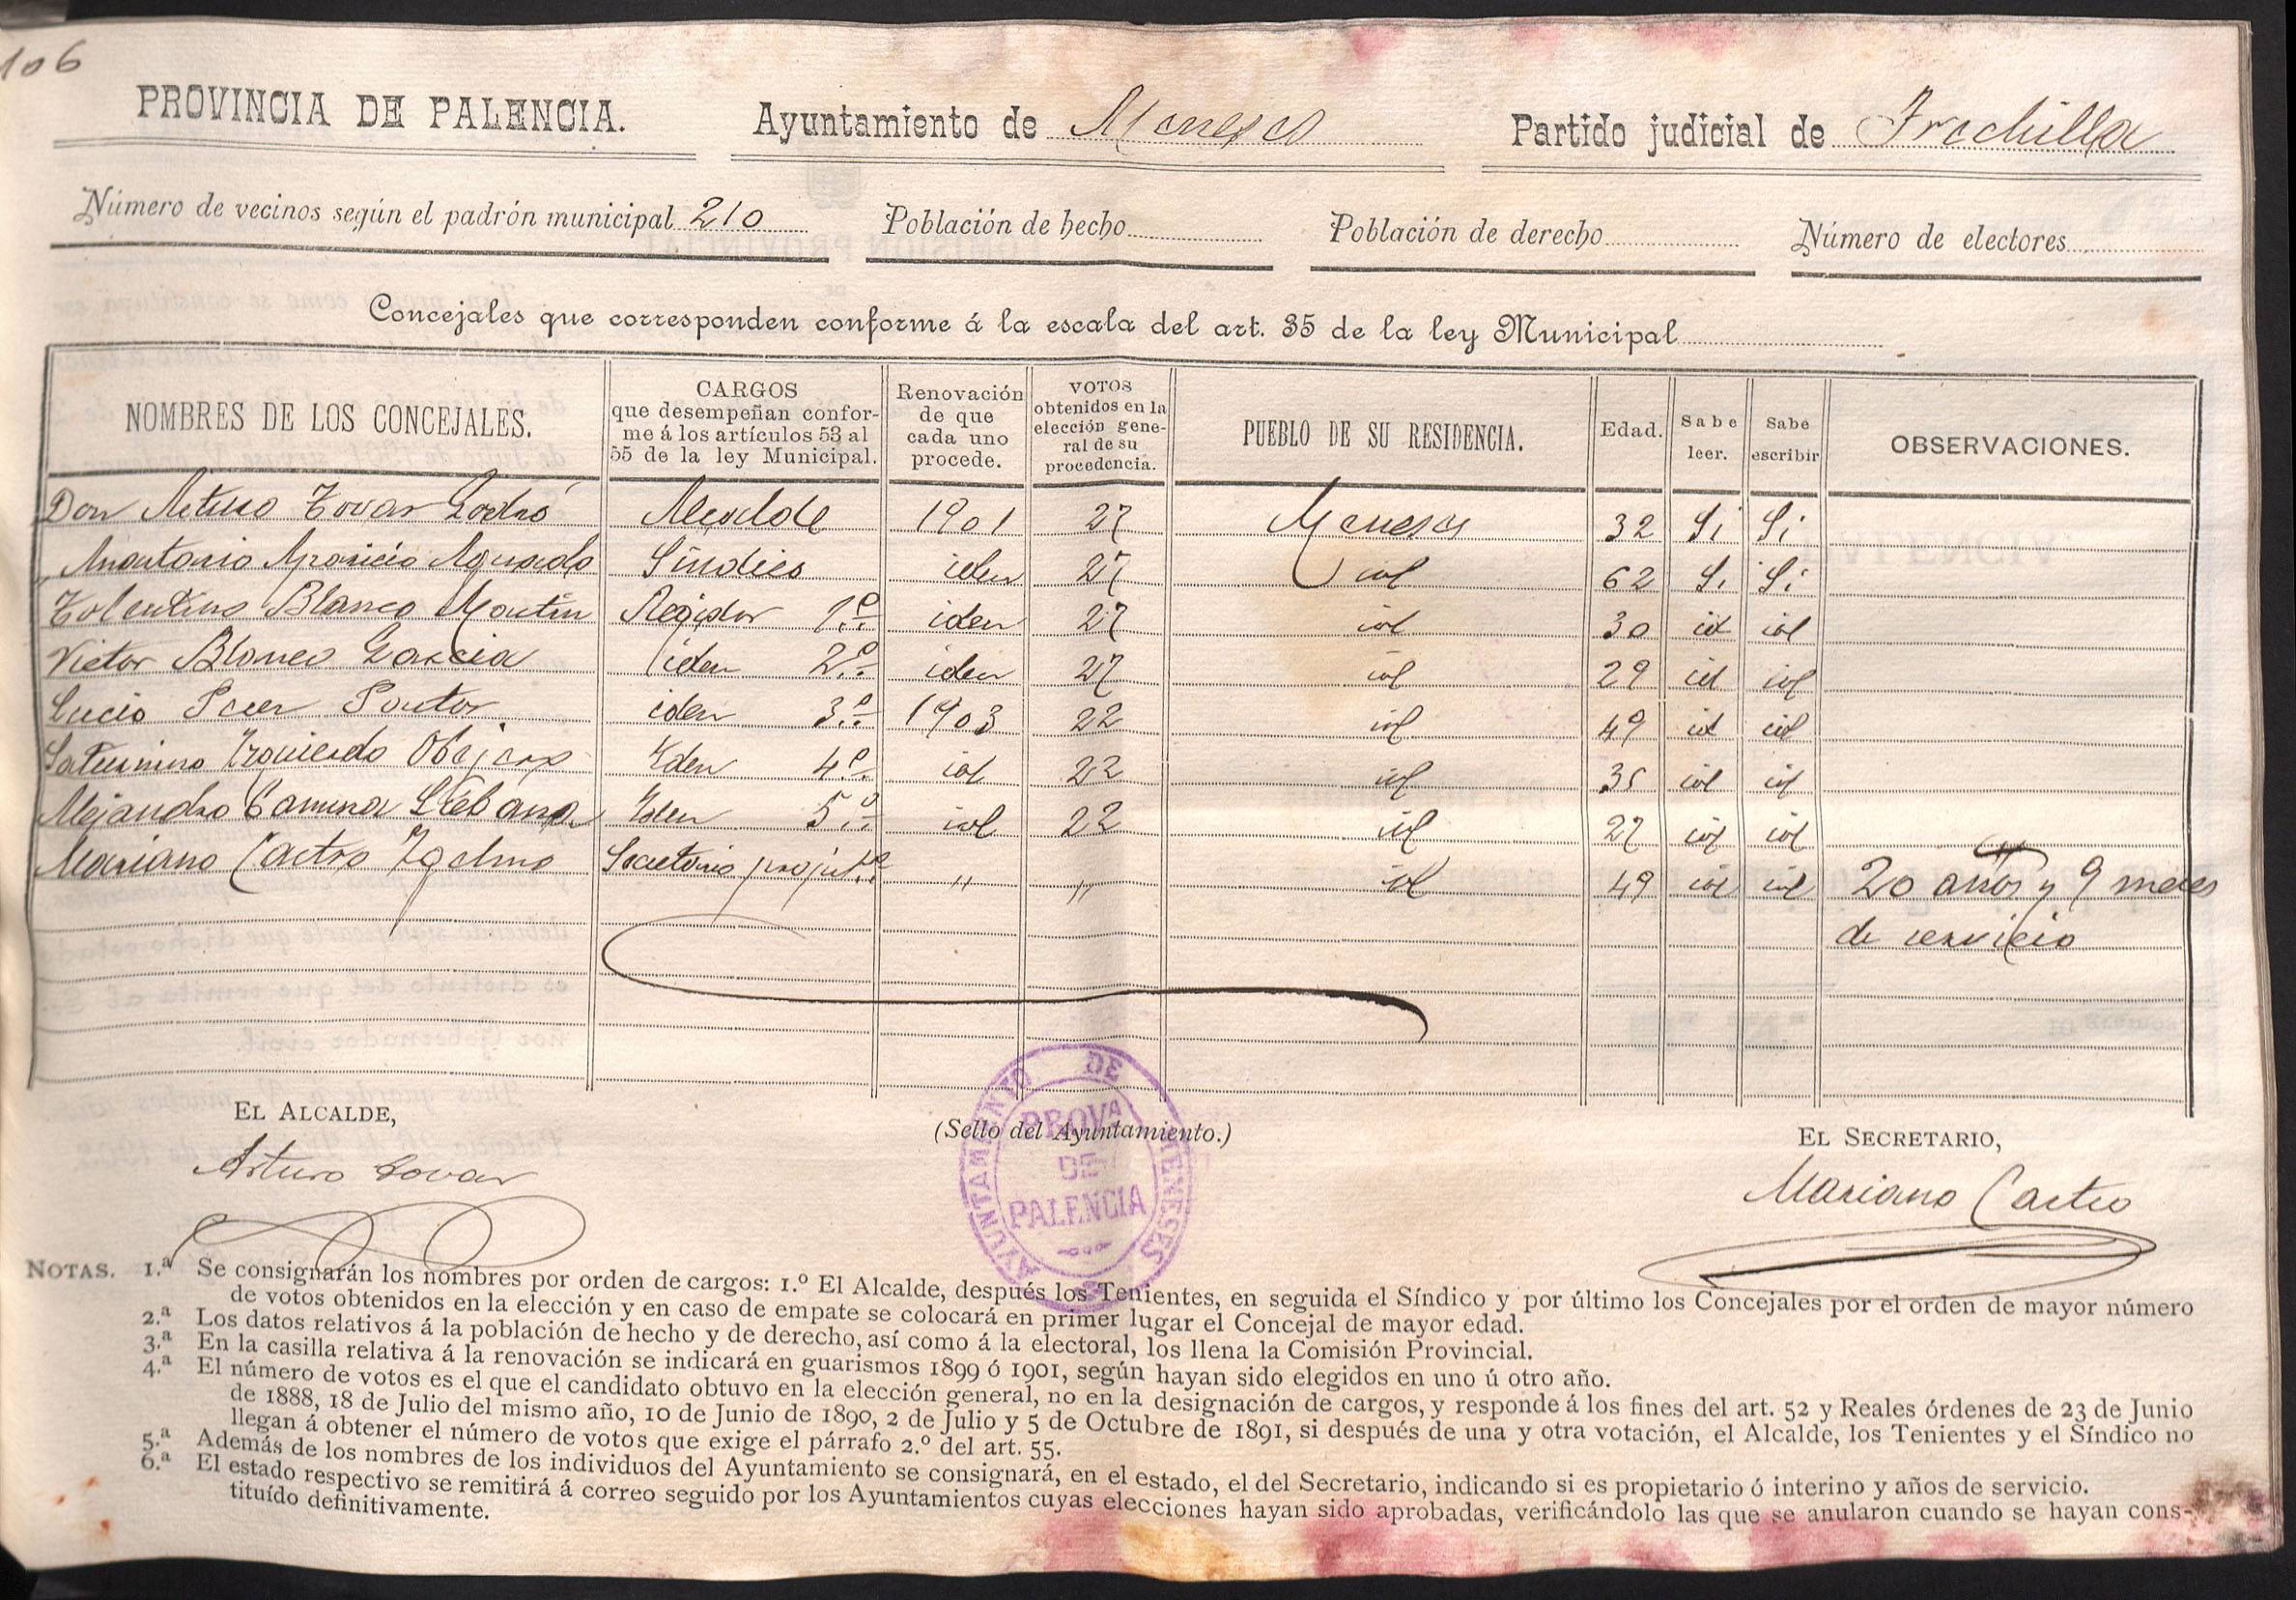 106
PROVINCIA DE PALENCIA. Ayuntamiento de Meneses Partido judicial de Frechilla
Número de vecinos según el padrón municipal 210 Población de hecho Población de derecho Número de electores
Concejales que corresponden conforme á la escala del art. 35 de la ley Municipal
NOMBRES DE LOS CONCEJALES. CARGOS que desempeñan confor-me á los artículos 53 al 55 de la ley Municipal. Renovación de que cada uno procede. VOTOS obtenidos en la elección gene-ral de su procedencia. PUEBLO DE SU RESIDENCIA. Edad. Sabe leer. Sabe escribir OBSERVACIONES.
Don Arturo Tovar Alcalde 1901 27 Meneses 32 Si Si
Aparicio Aguado Síndico iden 27 id 62 Si Si
Tolentino Blanco Martin Regidor 1.º iden 27 id 30 id id
Victor Blanco Garcia iden 2.º iden 27 id 29 id id
Lucio Pastor iden 3.º 1903 22 id 49 id id
Saturnino Izquierdo Iden 4.º id 22 id 35 id id
Alejandro Iden 5.º id 22 id 27 id id
Mariano Castro Secretario " " id 49 id id 20 años y 9 meses
de servicio
EL ALCALDE, (Sello del Ayuntamiento.) EL SECRETARIO,
Arturo Tovar Mariano Castro
AYUNTAMIENTO DE MENESES
PROVA
DE
PALENCIA
NOTAS. 1.ª Se consignarán los nombres por orden de cargos: 1.º El Alcalde, después los Tenientes, en seguida el Síndico y por último los Concejales por el orden de mayor número
de votos obtenidos en la elección y en caso de empate se colocará en primer lugar el Concejal de mayor edad.
2.ª Los datos relativos á la población de hecho y de derecho, así como á la electoral, los llena la Comisión Provincial.
3.ª En la casilla relativa á la renovación se indicará en guarismos 1899 ó 1901, según hayan sido elegidos en uno ú otro año.
4.ª El número de votos es el que el candidato obtuvo en la elección general, no en la designación de cargos, y responde á los fines del art. 52 y Reales órdenes de 23 de Junio
de 1888, 18 de Julio del mismo año, 10 de Junio de 1890, 2 de Julio y 5 de Octubre de 1891, si después de una y otra votación, el Alcalde, los Tenientes y el Síndico no
llegan á obtener el número de votos que exige el párrafo 2.º del art. 55.
5.ª Además de los nombres de los individuos del Ayuntamiento se consignará, en el estado, el del Secretario, indicando si es propietario ó interino y años de servicio.
6.ª El estado respectivo se remitirá á correo seguido por los Ayuntamientos cuyas elecciones hayan sido aprobadas, verificándolo las que se anularon cuando se hayan cons-
tituído definitivamente.